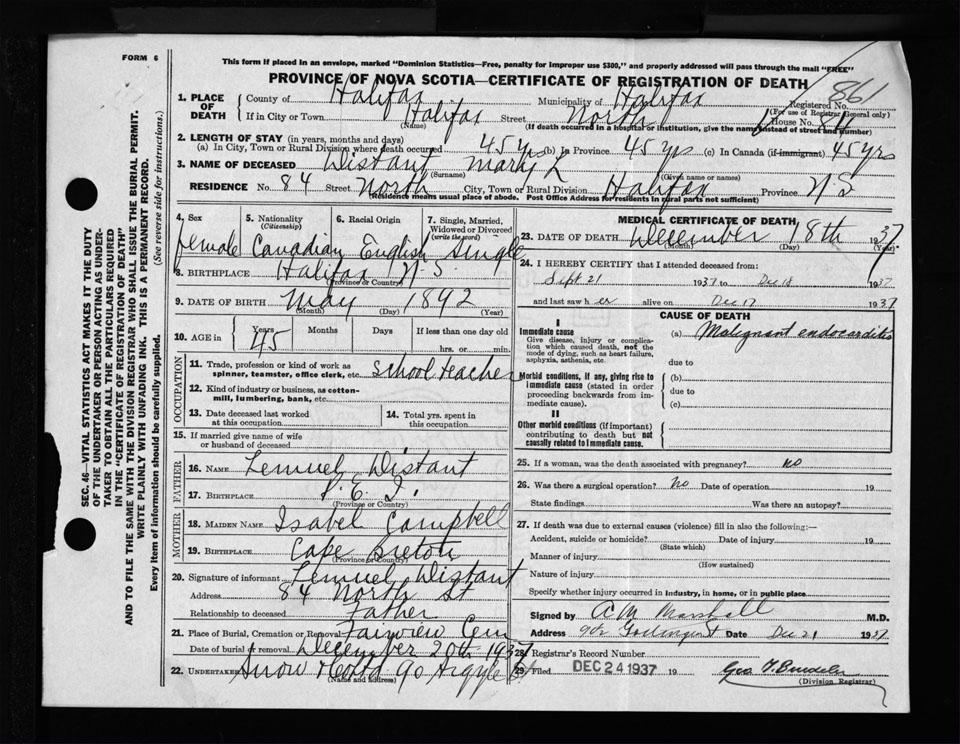 FORM 6
This form if placed in an envelope, marked "Dominion Statistics—Free, penalty for improper use $300," and properly addressed will pass through the mail "FREE"
PROVINCE OF NOVA SCOTIA—CERTIFICATE OF REGISTRATION OF DEATH
861
1. PLACE OF DEATH { County of Halifax Municipality of Halifax Registered No.
(For use of Registrar General only)
If in City or Town Halifax Street North House No. 84
(Name) (If death occurred in a hospital or institution, give the name instead of street and number)
2. LENGTH OF STAY (in years, months and days)
(a) In City, Town or Rural Division where death occurred 45 yrs (b) In Province 45 yrs (c) In Canada (if immigrant) 45 yrs
3. NAME OF DECEASED Distant Mary L
(Surname) (Given name or names)
RESIDENCE No. 84 Street North City, Town or Rural Division Halifax Province N.S
(Residence means usual place of abode. Post Office Address for residents in rural parts not sufficient)
4. Sex 5. Nationality (Citizenship) 6. Racial Origin 7. Single, Married, Widowed or Divorced (write the word)
female Canadian English Single
8. BIRTHPLACE Halifax N.S.
(Province or Country)
9. DATE OF BIRTH May 1892
(Month) (Day) (Year)
10. AGE in { Years Months Days If less than one day old
45 hrs. or min.
OCCUPATION
11. Trade, profession or kind of work as spinner, teamster, office clerk, etc. School teacher
12. Kind of industry or business, as cotton-mill, lumbering, bank, etc.
13. Date deceased last worked at this occupation
14. Total yrs. spent in this occupation
15. If married give name of wife or husband of deceased
FATHER
16. NAME Lemuel Distant
17. BIRTHPLACE P.E.I.
(Province or Country)
MOTHER
18. MAIDEN NAME Isabel Campbell
19. BIRTHPLACE Cape Breton
(Province or Country)
20. Signature of informant Lemuel Distant
Address 84 North St
Relationship to deceased Father
21. Place of Burial, Cremation or Removal Fairview Cem
Date of burial or removal December 20th 1937
22. UNDERTAKER Snow & Co Ltd 90 Argyle St
(Name and Address)
MEDICAL CERTIFICATE OF DEATH
23. DATE OF DEATH December 18th 1937
(Month) (Day) (Year)
24. I HEREBY CERTIFY that I attended deceased from:
Sept 21 1937 to Dec 18 1937
and last saw her alive on Dec 17 1937
CAUSE OF DEATH
I
Immediate cause (a) Malignant endocarditis
Give disease, injury or complication which caused death, not the mode of dying, such as heart failure, asphyxia, asthenia, etc.
due to
Morbid conditions, if any, giving rise to immediate cause (stated in order proceeding backwards from immediate cause). (b)
due to
(c)
II
Other morbid conditions (if important) contributing to death but not causally related to immediate cause.
25. If a woman, was the death associated with pregnancy? no
26. Was there a surgical operation? No Date of operation 19
State findings Was there an autopsy?
27. If death was due to external causes (violence) fill in also the following:—
Accident, suicide or homicide? Date of injury 19
(State which)
Manner of injury
(How sustained)
Nature of injury
Specify whether injury occurred in industry, in home, or in public place
Signed by A M Marshall M.D.
Address Date Dec 21 1937
28. Registrar's Record Number
29. Filed DEC 24 1937 19
(Division Registrar)
SEC. 46—VITAL STATISTICS ACT MAKES IT THE DUTY
OF THE UNDERTAKER OR PERSON ACTING AS UNDER-
TAKER TO OBTAIN ALL THE PARTICULARS REQUIRED
IN THE "CERTIFICATE OF REGISTRATION OF DEATH"
AND TO FILE THE SAME WITH THE DIVISION REGISTRAR WHO SHALL ISSUE THE BURIAL PERMIT.
WRITE PLAINLY WITH UNFADING INK. THIS IS A PERMANENT RECORD.
Every item of information should be carefully supplied. (See reverse side for instructions.)